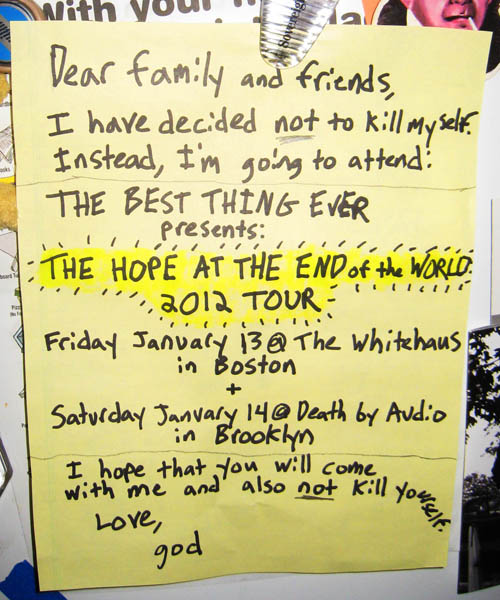 With your
la
Sovereign
Dear family and friends,
I have decided not to kill myself.
Instead, I'm going to attend:
THE BEST THING EVER
presents:
THE HOPE AT THE END of the WORLD
2012 TOUR
Friday January 13 @ The Whitehaus
in Boston
+
Saturday January 14 @ Death by Audio
in Brooklyn
I hope that you will come
with me and also not kill yourself.
Love,
god